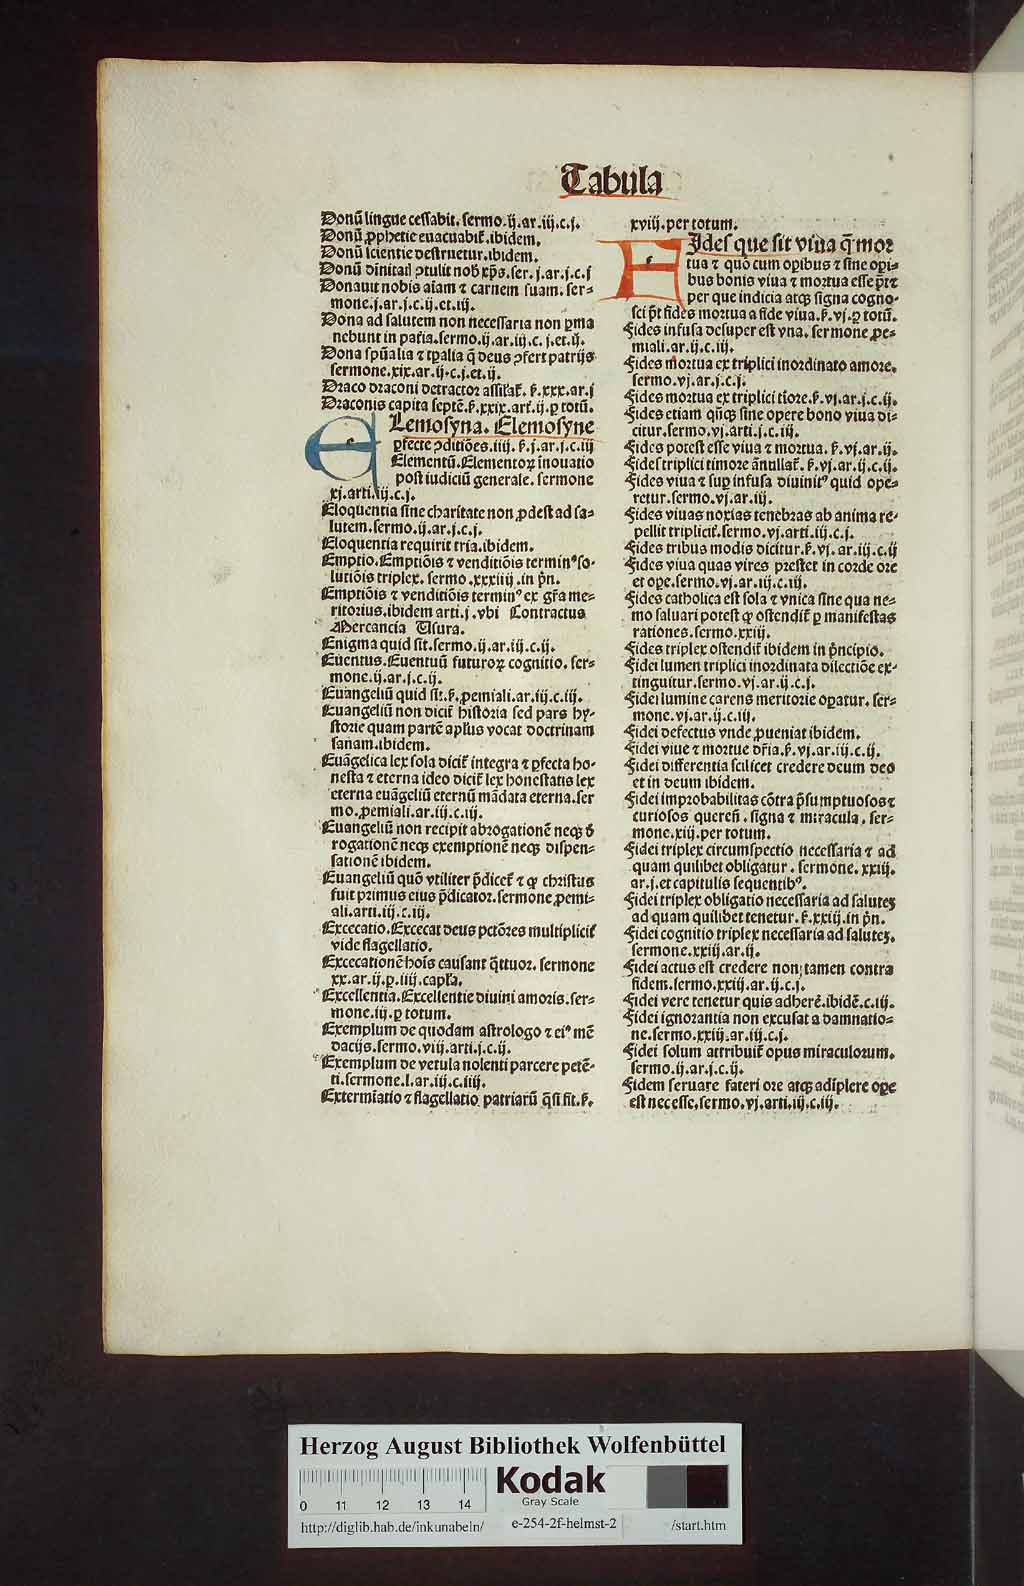 Tabula
Donū lingue cessabit. sermo.ij.ar.iij.c.j.
Donū ꝓphetie euacuabit̄. ibidem.
Donū scientie destruetur. ibidem.
Donū diuitaꝝ ꝯtulit nob̄ xp̄s. ser. j.ar.j.c.j
Donauit nobis aīam ⁊ carnem suam. ser⸗
mone.j.ar.j.c.ij.et.iij.
Dona ad salutem non necessaria non ꝑma
nebunt in patria. sermo.ij.ar.iij.c. j.et.ij.
Dona spūalia ⁊ tꝑalia q̄ deus ꝯfert patrijs
sermone.xix.ar.ij.c.j.et.ij.
Draco draconi detractor assilat̄. ẜ.xxx.ar.j
Draconis capita septē.ẜ.xxix.art̄.ij.ꝑ totū.
Elemosyna. Elemosyne
ꝑfecte ꝯditiōes.iiij. ẜ.j.ar.j.c.iij
Elementū. Elementoꝝ īnouatio
post iudiciū generale. sermone
xj.arti.iij.c.j.
Eloquentia sine charitate non ꝓdest ad sa⸗
lutem. sermo.ij.ar.j.c.j.
Eloquentia requirit tria. ibidem.
Emptio. Emptiōis ⁊ venditiōis terminꝰ so⸗
lutiōis triplex. sermo .xxxiiij .in pn̄.
Emptiōis ⁊ venditiōis terminꝰ ex gr̄a me⸗
ritorius. ibidem arti.j. vbi Contractus
Mercancia Usura.
Enigma quid sit. sermo.ij.ar.iij.c.ij.
Euentus. Euentuū futuroꝝ cognitio. ser⸗
mone.ij.ar.j.c.ij.
Euangeliū quid sit. ẜ. ꝓemiali.ar.iij.c.iij.
Euangeliū non dicit̄ historia sed pars hy⸗
storie quam partē apl̄us vocat doctrinam
sanam. ibidem.
Euāgelica lex sola dicit̄ integra ⁊ ꝑfecta ho⸗
nesta ⁊ eterna ideo dicit̄ lex honestatis lex
eterna euāgeliū eternū mādata eterna. ser
mo. ꝓemiali.ar.iij.c.iij.
Euangeliū non recipit abrogationē neqꝫ d̄
rogationē neqꝫ exemptionē neqꝫ dispen⸗
sationē ibidem.
Euangeliū quō vtiliter p̄dicet̄ ⁊ ꝙ christus
fuit primus eius p̄dicator. sermone ꝓemi⸗
ali.arti.iij.c.iij.
Excecatio. Excecat deus pctōres multiplicit̄
vide flagellatio.
Excecationē hoīs causant q̄ttuor. sermone
xx.ar.ij.ꝑ.iiij.capl̄a.
Excellentia. Excellentie diuini amoris. ser⸗
mone.iij.ꝑ totum.
Exemplum de quodam astrologo ⁊ eiꝰ mē
dacijs. sermo.viij.arti.j.c.ij.
Exemplum de vetula nolenti parcere petē⸗
ti. sermone.l.ar.iij.c.iiij.
Extermiatio ⁊ flagellatio patriarū q̄si fit. ẜ.
xviij. per totum.
Fides que sit viua q̄ mor
tua ⁊ quō cum oꝑibus ⁊ sine oꝑi⸗
bus bonis viua ⁊ mortua esse p̄t ⁊
per que indicia atqꝫ signa cogno⸗
sci p̄t fides mortua a fide viua. ẜ. vj. ꝑ totū.
Fides infusa desuper est vna. sermone ꝓe⸗
miali.ar.ij.c.iij.
Fides mortua ex triplici inordinato amore.
sermo.vj.ar.j.c.j.
Fides mortua ex triplici tiōre. ẜ. vj.ar.j.c.ij.
Fides etiam qn̄qꝫ sine opere bono viua di⸗
citur. sermo.vj.arti.j.c.iij.
Fides potest esse viua ⁊ mortua. ẜ. vj.ar.ij.
Fides triplici timore ānullat̄. ẜ. vj.ar.ij.c.ij.
Fides viua ⁊ suꝑ infusa diuinitꝰ quid ope⸗
retur. sermo.vj.ar.iij.
Fides viuas noxias tenebras ab anima re⸗
pellit triplicit̄. sermo.vj.arti.iij.c.j.
Fides tribus modis dicitur. ẜ. vj. ar.iij.c.ij
Fides viua quas vires prestet in corde ore
et oꝑe. sermo.vj.ar.iij.c.iij.
Fides catholica est sola ⁊ vnica sine qua ne⸗
mo saluari potest ꝙ ostendit̄ ꝑ manifestas
rationes. sermo.xxiij.
Fides triplex ostendit̄ ibidem in p̄ncipio.
Fidei lumen triplici inordinata dilectiōe ex⸗
tinguitur. sermo.vj.ar.ij.c.j.
Fidei lumine carens meritorie oꝑatur. ser⸗
mone.vj.ar.ij.c.iij.
Fidei defectus vnde ꝓueniat ibidem.
Fidei viue ⁊ mortue dr̄ia. ẜ. vj.ar.iij.c.ij.
Fidei differentia scilicet credere deum deo
et in deum ibidem.
Fidei improbabilitas cōtra p̄sumptuosos ⁊
curiosos queren̄. signa ⁊ miracula. ser⸗
mone.xiij.per totum.
Fidei triplex circumspectio necessaria ⁊ ad
quam quilibet obligatur. sermone. xxiij.
ar.j.et capitulis sequentibꝰ.
Fidei triplex obligatio necessaria ad saluteꝫ
ad quam quilibet tenetur. ẜ.xxiij.in pn̄.
Fidei cognitio triplex necessaria ad saluteꝫ.
sermone.xxiij.ar.ij.
Fidei actus est credere non tamen contra
fidem. sermo.xxiij.ar.ij.c.j.
Fidei vere tenetur quis adherē. ibidē.c.iij.
Fidei ignorantia non excusat a damnatio⸗
ne. sermo.xxiij.ar.iij.c.j.
Fidei solum attribuit̄ opus miraculorum.
sermo.ij.ar.j.c.ij.
Fidem seruare fateri ore atqꝫ adīplere oꝑe
est necesse. sermo.vj.arti.iij.c.iij.
Herzog August Bibliothek Wolfenbüttel
Kodak
Gray Scale
0 11 12 13 14
http://diglib.hab.de/inkunabeln/ e-254-2f-helmst-2 /start.htm